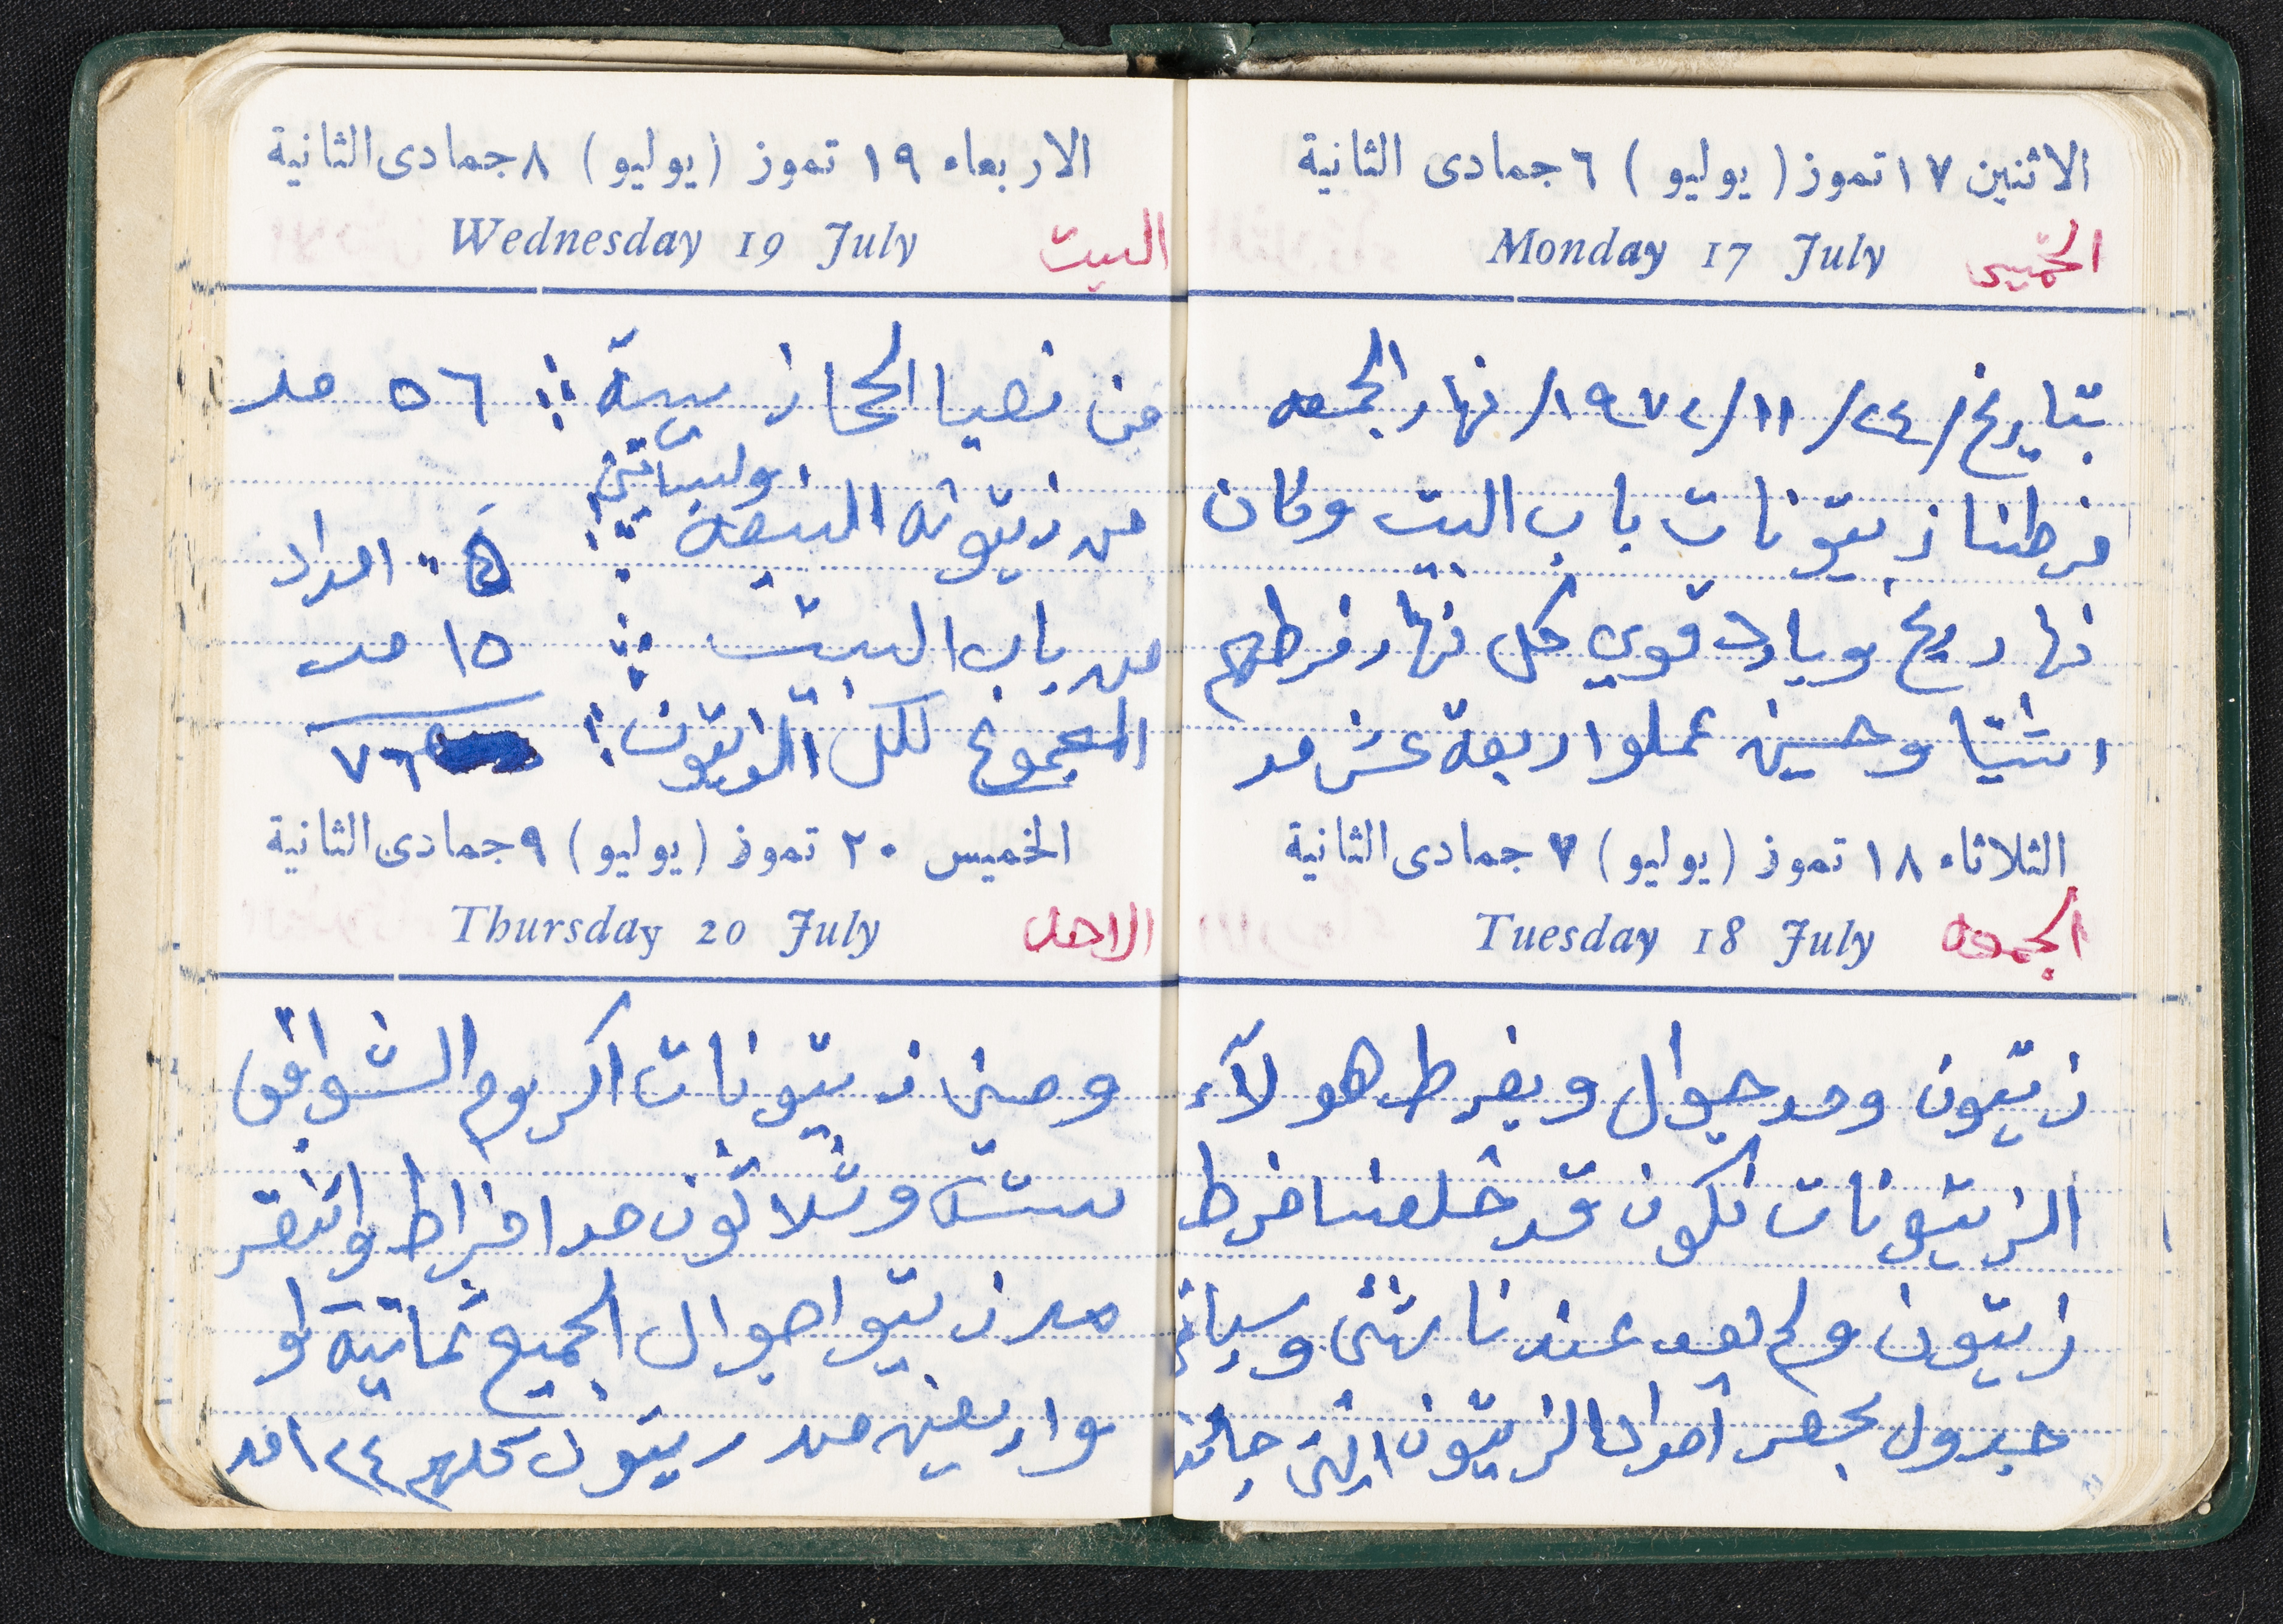 الاثنين ١٧ تموز (يوليو) ٦ جمادى الثانية
Monday 17 July
الخميس
بتاريخ/٢٤/١١/١٩٧٢/نهار الجمعه
فرطنا زيتونات باب البيت وكان
نهار ريح وبارد قوي كل نهار فرطهم
انثيا وحسين عملوا اربعة عشر مد
الثلاثاء ١٨ تموز (يوليو) ٧ جمادى الثانية
Tuesday 18 July
الجمعه
زيتون ومد جوال وبفرط هولآء
الزيتونات نكون قد خلصنا فرط
زيتون ولم يعد عندنا شئ وسيأتي
جدول بجمع أمداد الزيتون التي
الاربعاء ١٩ تموز (يوليو) ٨ جمادى الثانية
Wednesday 19 July
السبت
من نصبا الحجازيية : ٥٦ مد
وليساتين
من زيتونه البيعة : ٥ امداد
من باب البيت : ١٥ مد
المجموع لكل الزيتون : ٧٦
الخميس ٢٠ تموز (يوليو) ٩ جمادى الثانية
Thursday 20 July
الاحد
ومن زيتونات اكروم الشواقي
ستة وثلاثون مدا فراط واثنعشر
مد زيتو اجوال الجميع ثمانية
واربعين مد زيتون كلهم ١٢٤ مد